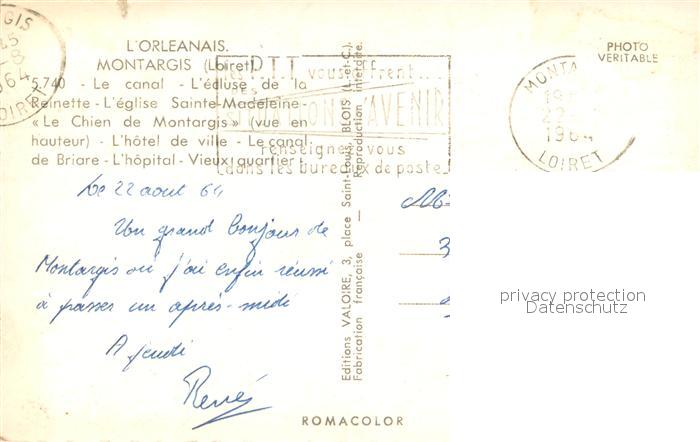 L'ORLEANAIS.
MONTARGIS (Loiret)
5.740 - Le canal - L'écluse de la
Reinette - L'église Sainte-Madeleine -
« Le Chien de Montargis » (vue en
hauteur) - L'hôtel de ville - Le canal
de Briare - L'hôpital - Vieux quartier.
les P.T.T. vous offrent...
des
SITUATIONS D'AVENIR
renseignez vous
dans les bureaux de poste
GIS
1964
LOIRET
MONTA
1964
LOIRET
PHOTO
VERITABLE
Le 22 août 64
Un grand bonjour de
Montargis où j'ai enfin réussi
à passer un après-midi
A jeudi
René
Editions VALOIRE, 3, place Saint-Louis, BLOIS (L.-et-C.).
Fabrication française - Reproduction interdite.
ROMACOLOR
privacy protection
Datenschutz